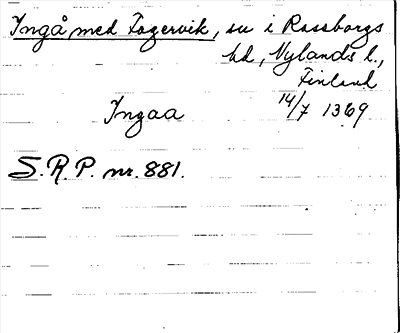 Ingå med Fagervik, sn i Raseborgs
hd, Nylands l.,
Finland
Ingaa 14/7 1369
S.R.P. nr. 881.